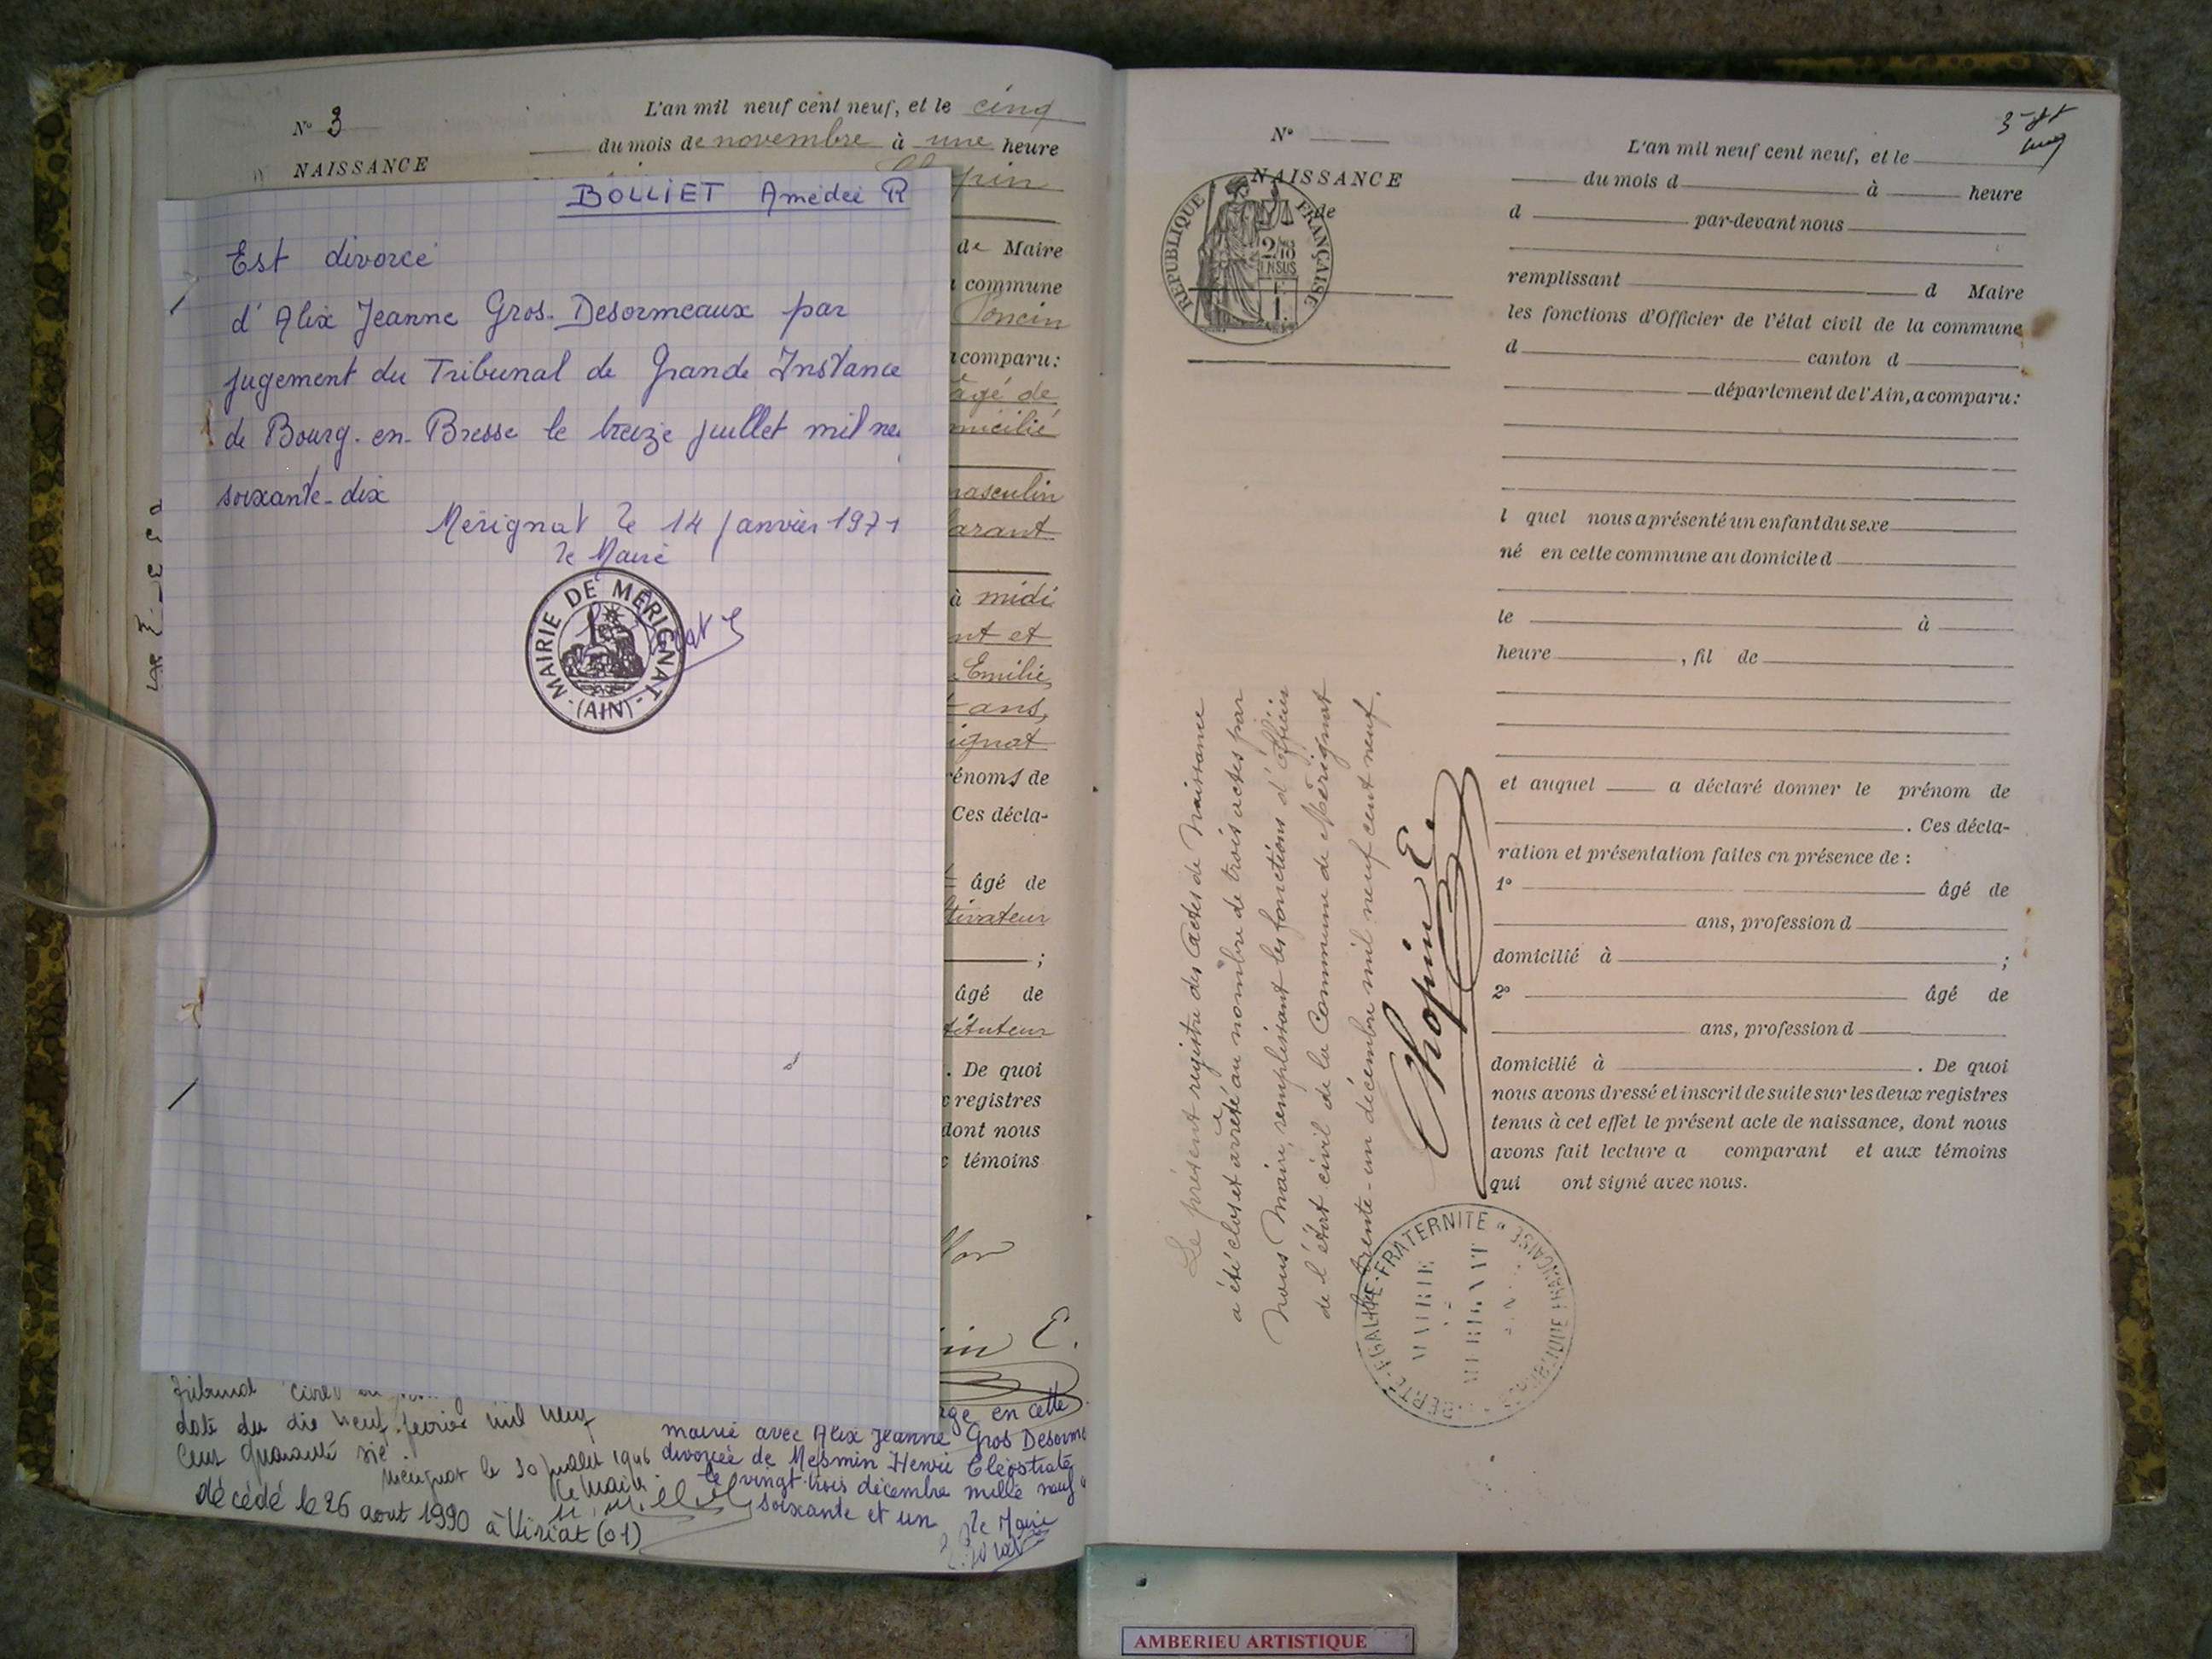 N° 3
NAISSANCE
L'an mil neuf cent neuf, et le cinq
du mois de novembre à une heure
BOLLIET Amédée R
Est divorcé
d'Alix Jeanne Gros-Desormeaux par
jugement du Tribunal de Grande Instance
de Bourg-en-Bresse le treize juillet mil ne
soixante-dix
Mérignat le 14 Janvier 1971
le Maire
MAIRIE DE MÉRIGNAT
(AIN)
pin
de Maire
commune
Poncin
comparu:
âgé de
micilié
masculin
arant
à midi
nt et
Emilie,
ans,
ignat
rénoms de
Ces décla-
âgé de
tivateur
;
âgé de
tituteur
. De quoi
registres
dont nous
témoins
in E.
Tribunal civil
date du dix neuf février mil neuf
cent quarante six
Mérignat le 30 juillet 1946
le Maire
décédé le 26 aout 1990 à Viriat (01)
age en cette
mairie avec Alix Jeanne Gros Desorme
divorcée de Mesmin Henri Cléostrate
le vingt-trois décembre mille neuf
soixante et un
le Maire
N°
NAISSANCE
de
RÉPUBLIQUE FRANÇAISE
L'an mil neuf cent neuf, et le
du mois d à heure
d par-devant nous
remplissant d Maire
les fonctions d'Officier de l'état civil de la commune
d canton d
département de l'Ain, a comparu:
l quel nous a présenté un enfant du sexe
né en cette commune au domicile d
le à
heure , fil de
et auquel a déclaré donner le prénom de
. Ces décla-
ration et présentation faites en présence de :
1° âgé de
ans, profession d
domicilié à ;
2° âgé de
ans, profession d
domicilié à . De quoi
nous avons dressé et inscrit de suite sur les deux registres
tenus à cet effet le présent acte de naissance, dont nous
avons fait lecture a comparant et aux témoins
qui ont signé avec nous.
Le présent registre des actes de Naissance
a été clos et arrêté au nombre de trois actes par
Nous Maire, remplissant les fonctions d'officier
de l'état civil de la Commune de Mérignat
le trente-un décembre mil neuf cent neuf.
Chopin E.
LIBERTÉ-ÉGALITÉ-FRATERNITÉ
MAIRIE
MERIGNAT
AMBERIEU ARTISTIQUE